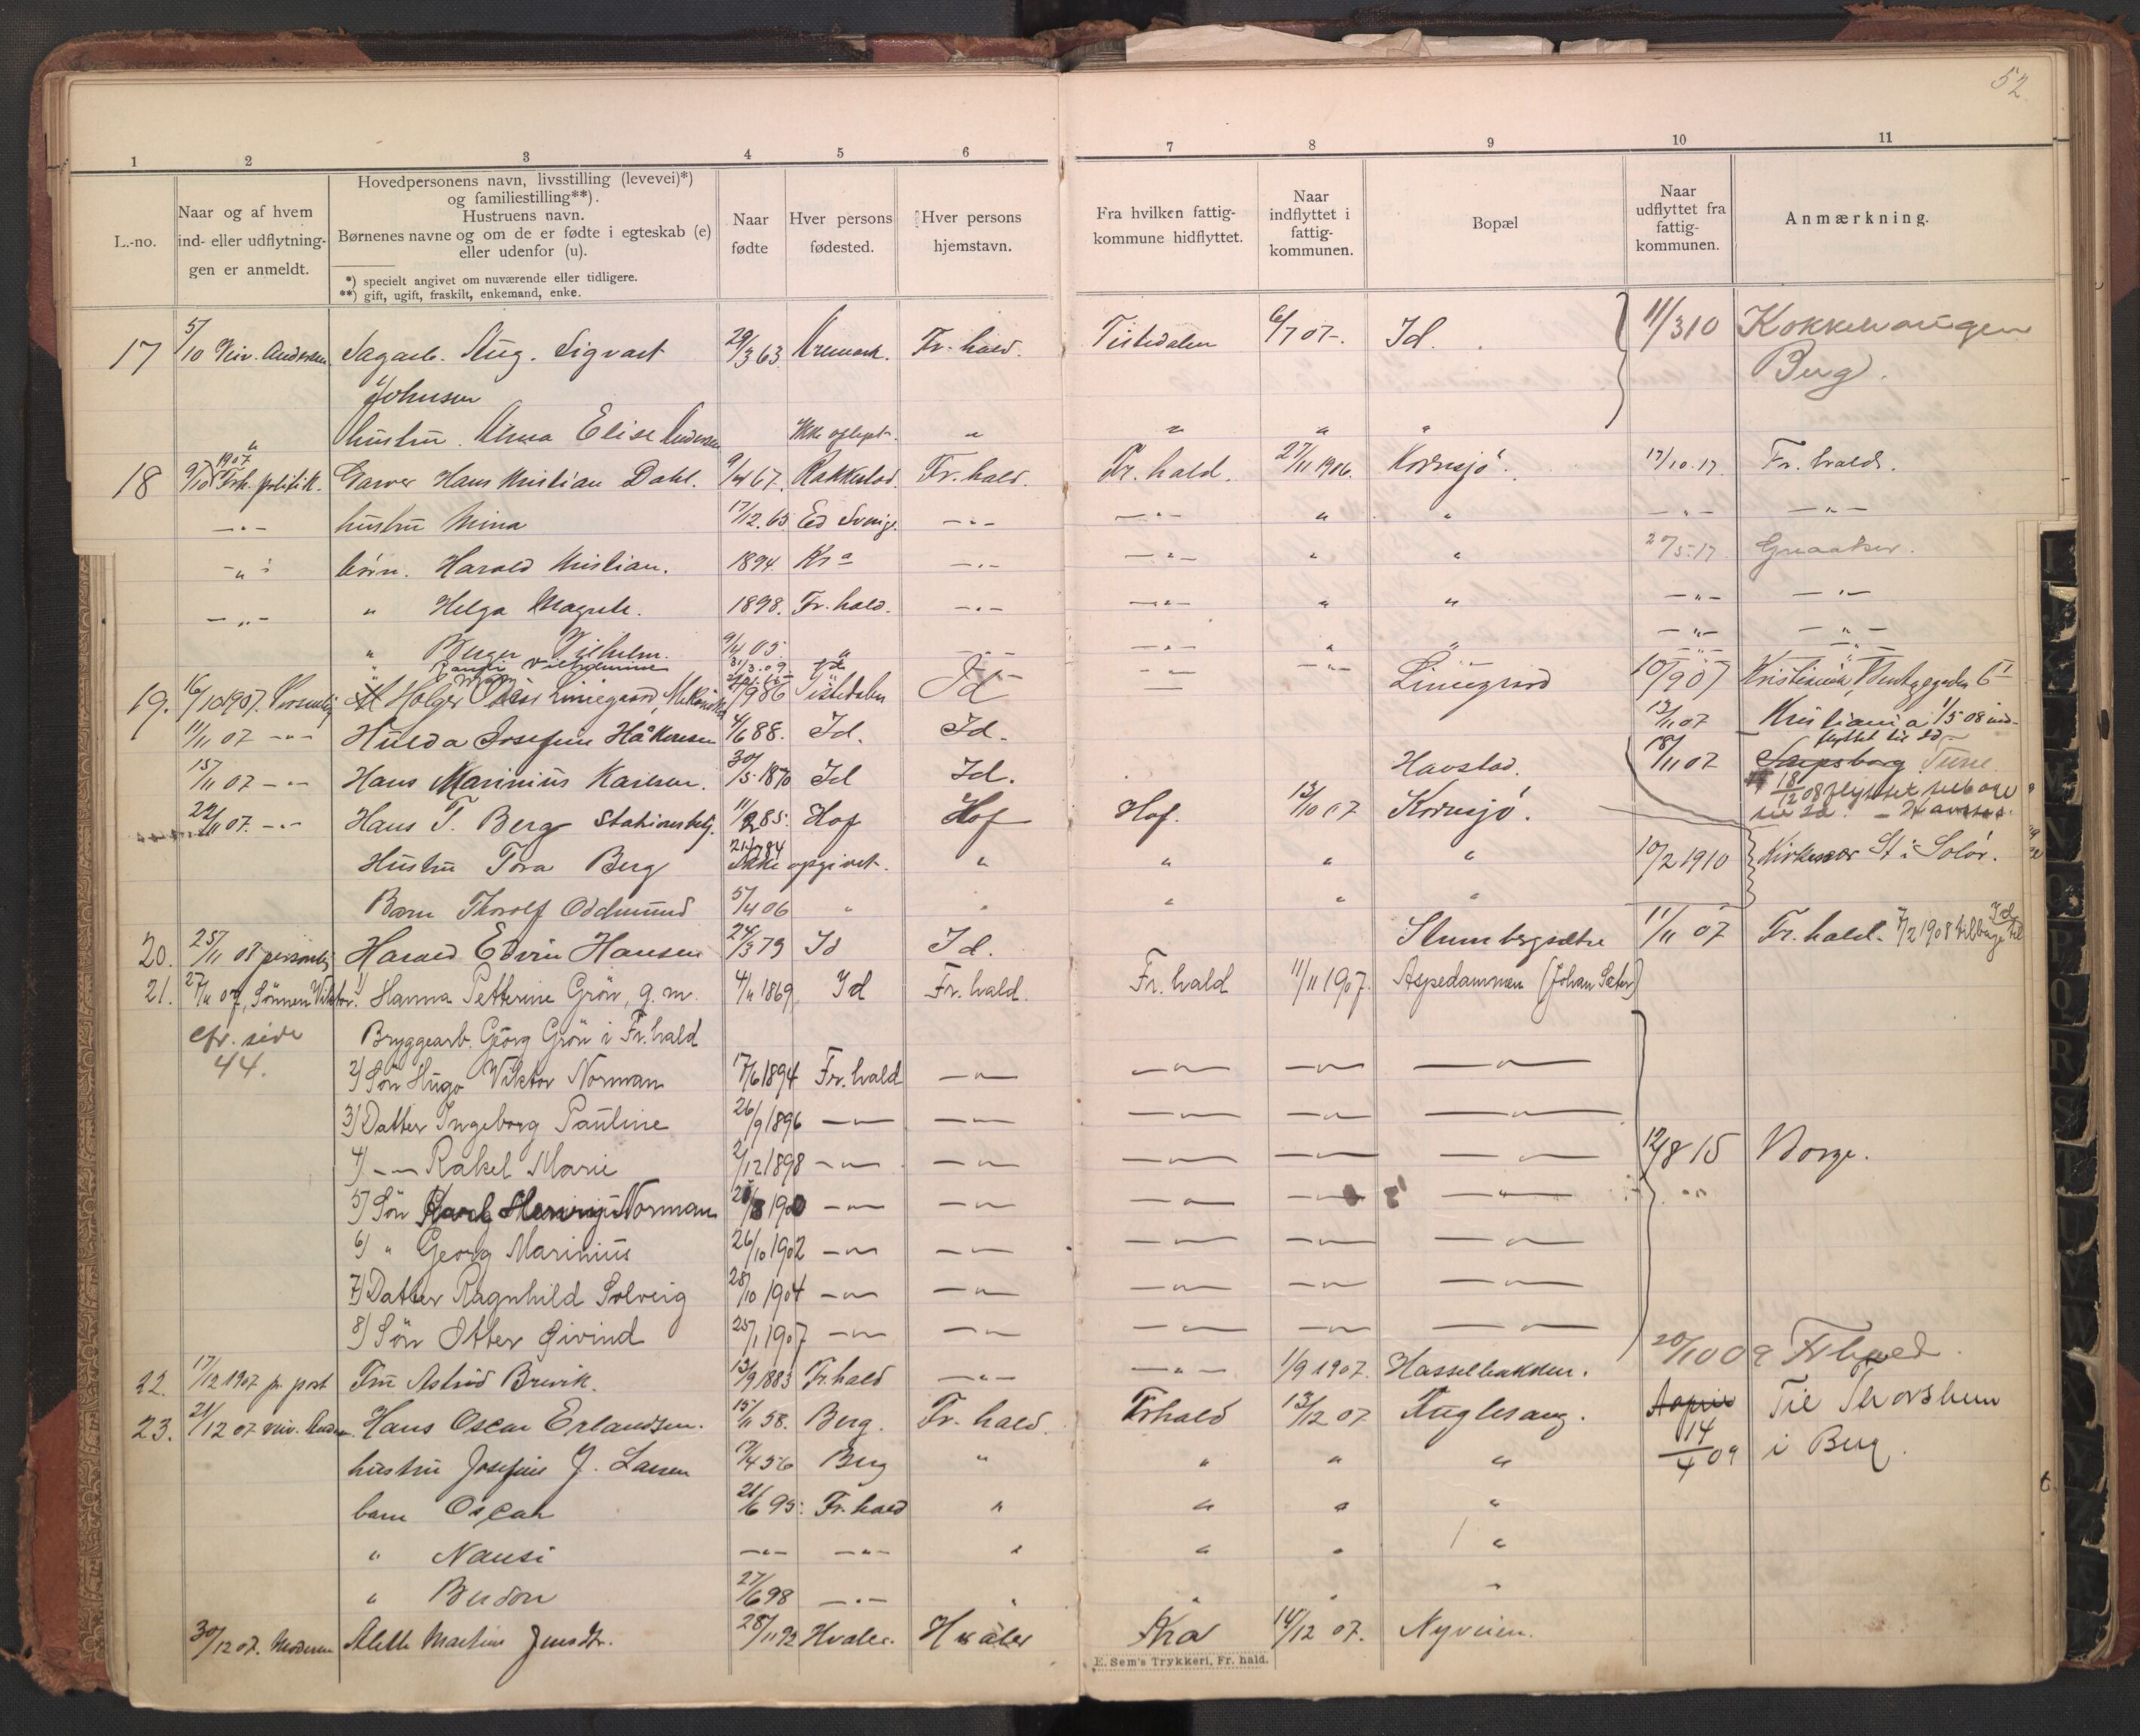 52
1 2 3 4 5 6 7 8 9 10 11
L.-no.
Naar og af hvem
ind- eller udflytnin-
gen er anmeldt.
Hovedpersonens navn, livsstilling (levevei)*)
og familiestilling**).
Hustruens navn.
Børnenes navne og om de er fødte i egteskab (e)
eller udenfor (u).
*) specielt angivet om nuværende eller tidligere.
**) gift, ugift, fraskilt, enkemand, enke.
Naar
fødte
Hver persons
fødested.
Hver persons
hjemstavn.
Fra hvilken fattig-
kommune hidflyttet.
Naar
indflyttet i
fattig-
kommunen.
Bopæl
Naar
udflyttet fra
fattig-
kommunen.
Anmærkning.
17 5/10 Andersen Sagarb. Aug. Sigvart 29/3 63 Aremark. Fr. hald. Tistedalen 6/7 07 Id. 11/3 10 Kokkevangen
Johnsen Berg.
" hustru Alma Elise Andersen Ikke oplyst. " " " "
18 9/10 1907 Frh. politik. Garver Hans Kristian Dahl. 9/4 67. Rakkestad. Fr. hald. Fr. hald. 27/11 1906. Kornsjø. 17/10.17. Fr. halds.
-"- hustru Mina 17/12.65 Ed Sverige -"- -"- " " -"- -"-
-"- børn. Harald Kristian. 1894. Kra -"- -"- " " 27/5.17.
-"- " Helga Magrete. 1898. Fr. hald. -"- -"- " " -"- -"-
" Birger Vilhelm. 9/4 05. " -"- -"- " " -"- -"-
" Randi Vilhelmine 31/3.09 Id -"- -"- " -"- -"-
19. 16/10 1907. Personlig Holger Linnegaard, 9 86 Tistedalen Id Linnegrund 10/9 07 Kristiania,
11/11 07 -"- Hulda Josefine Håkensen 4/6 88. Id. Id. 13/11 07 Kristiania 1/5 08 ind-
flyttet til Id
15/11 07 -"- Hans Marinius Karlsen. 30/5 1870 Id Id. Havstad. 18/11 07 Sarpsborg Tune
18/12 08 flyttet tilbage
til Id. - Havstad.
22/11 07. -"- Hans T. Berg Stationsbetj. 11/2 85. Hof Hof Hof. 13/10 07 Kornsjø.
Hustru Tora Berg 21/1 84 Ikke opgivet. " " " " 10/2 1910 Kirkenær St. i Solør.
Barn Thorolf Oddmund 5/4 06 " " " " "
20. 25/11 08 personlig Harald Edvin Hansen 24/3 79 Id Id. Stumbergsætre 11/11 07 Fr. hald. 7/2 1908 tilbage til Id
21. 27/11 07, Sønnen Viktor. 1) Hanna Petterine Grön, g. m. 4/11 1869 Id Fr. hald. Fr. hald 11/11 1907. Aspedammen (Johan Sæter)
cfr. side Bryggearb. Georg Grön i Fr. hald
44. 2) Søn Hugo Viktor Norman 17/6 1894 Fr. hald -"- -"- -"- -"-
3) Datter Ingeborg Pauline 26/9 1896 -"- -"- -"- -"- -"-
4) -"- Rakel Marie 2/12 1898 -"- -"- -"- -"- -"- 12/8 15 Borge.
5) Søn Karl Henning Norman 28/8 1900 -"- -"- -"- -"- -"- "
6) " Georg Marinius 26/10 1902 -"- -"- -"- -"- -"-
7) Datter Ragnhild Solveig 28/10 1904 -"- -"- -"- -"- -"-
8) Søn Otter Eivind 25/1 1907 -"- -"- -"- -"- -"-
22. 17/12 1907 pr. post Fru Astrid Brevik. 13/9 1883 Fr. hald -"- -"- 1/9 1907. Hasselbakken. 20/10 09 Fr hald.
23. 21/12 07 Hans Oscar Erlandsen. 15/11 58. Berg. Fr. hald. Frhald 13/12 07 Fuglesang. April Til Thorshun
14/4 09 i Berg.
hustru Josefine J. Larsen 17/4 56 Berg " " " "
barn Oscar 21/6 95. Fr. hald " " " "
" Nansi -"- -"- " " " "
" Burdon 27/6 98 -"- " " " "
30/12 07. Moderen Alette Martine Jensdtr. 28/11 92 Hvaler. Hvaler Kra 14/12 07. Nyveien.
E. Sem's Trykkeri, Fr. hald.